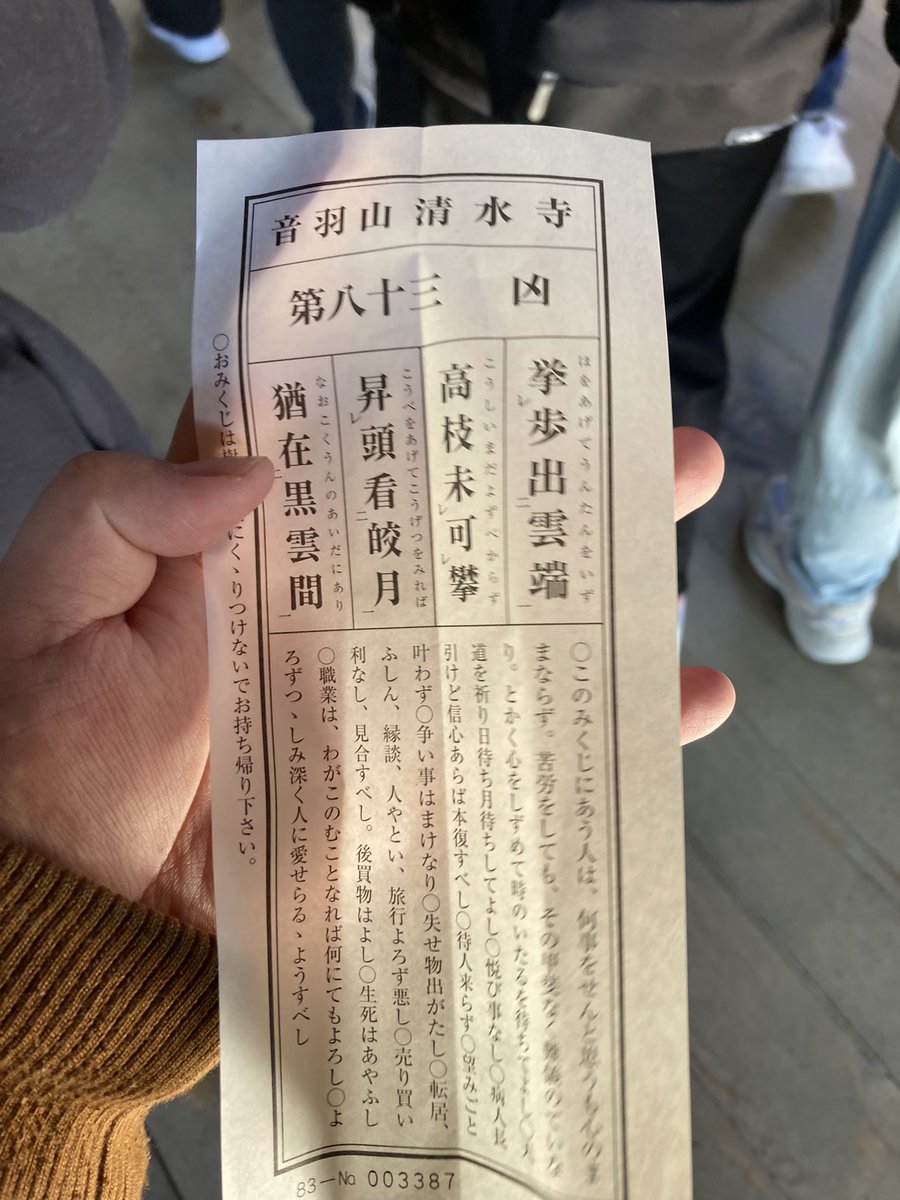 音羽山 清水寺
第八十三 凶
はをあげてうんたんをいず
挙レ歩出二雲端一
こうしいまだよずべからず
高枝未レ可レ攀
こうべをあげてこうげつをみれば
昇レ頭看二皎月一
なおこくうんのあいだにあり
猶在二黒雲間一
〇このみくじにあう人は、何事をせんと思うも心のま
まならず。苦労をしても、その甲斐なく難儀のていな
り。とかく心をしずめて時のいたるを待ちてよし〇天
道を祈り日待ち月待ちしてよし〇悦び事なし〇病人長
引けど信心あらば本復すべし〇待人来らず〇望みごと
叶わず〇争い事はまけなり〇失せ物出がたし〇転居、
ふしん、縁談、人やとい、旅行よろず悪し〇売り買い
利なし、見合すべし。後買物はよし〇生死はあやふし
〇職業は、わがこのむことなれば何にてもよろし〇よ
ろずつゝしみ深く人に愛せらるゝようすべし
〇おみくじは にくゝりつけないでお持ち帰り下さい。
83-No. 003387